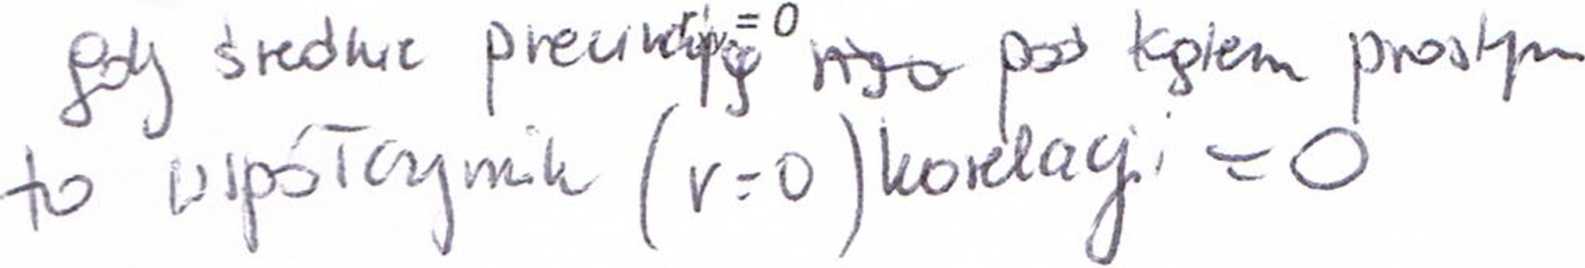 gdy średnie przecinają się pod kątem prostym
to współczynnik (r=0) korelacji = 0